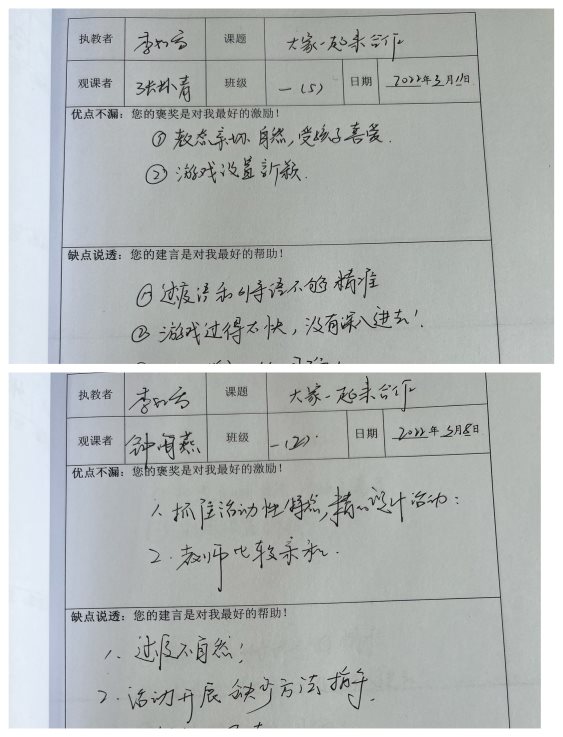 执教者 李 课题 大家一起来合作
观课者 张 青 班级 一(5) 日期 2022年3月11日
优点不漏：您的褒奖是对我最好的激励！
① 教态亲切 自然，受孩子喜爱.
② 游戏设置新颖.
缺点说透：您的建言是对我最好的帮助！
① 过度语和引导语不够精准
② 游戏过得太快，没有深入进去！
执教者 李 课题 大家一起来合作
观课者 钟 燕 班级 一(2) 日期 2022年3月8日
优点不漏：您的褒奖是对我最好的激励！
1. 抓住活动性特点，精心设计活动：
2. 教师比较亲和.
缺点说透：您的建言是对我最好的帮助！
1. 过度不自然！
2. 活动开展缺乏方法指导.